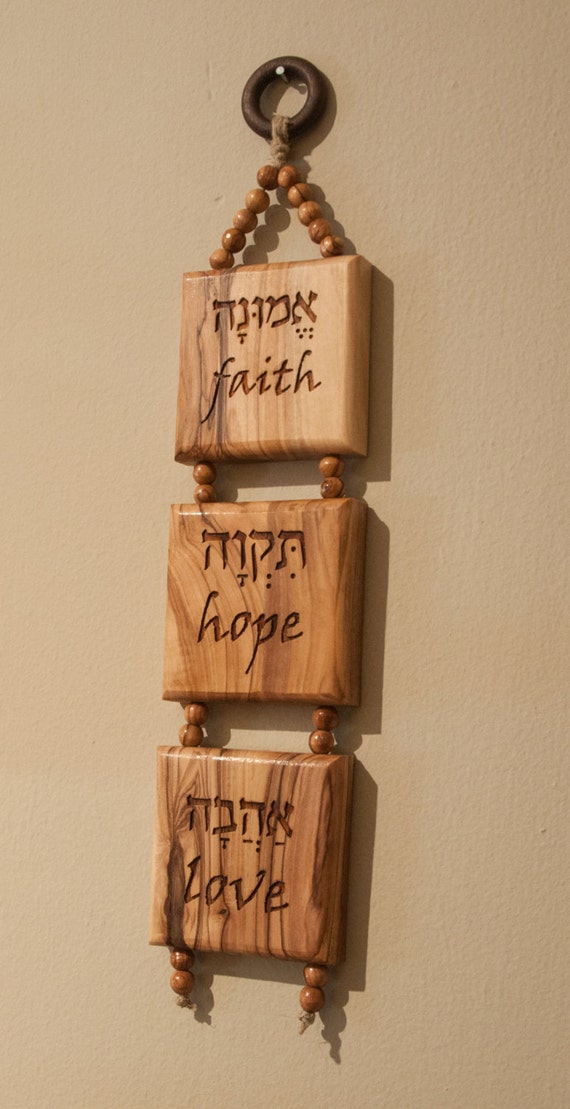 אֱמוּנָה
faith
תִּקְוָה
hope
אַהֲבָה
love